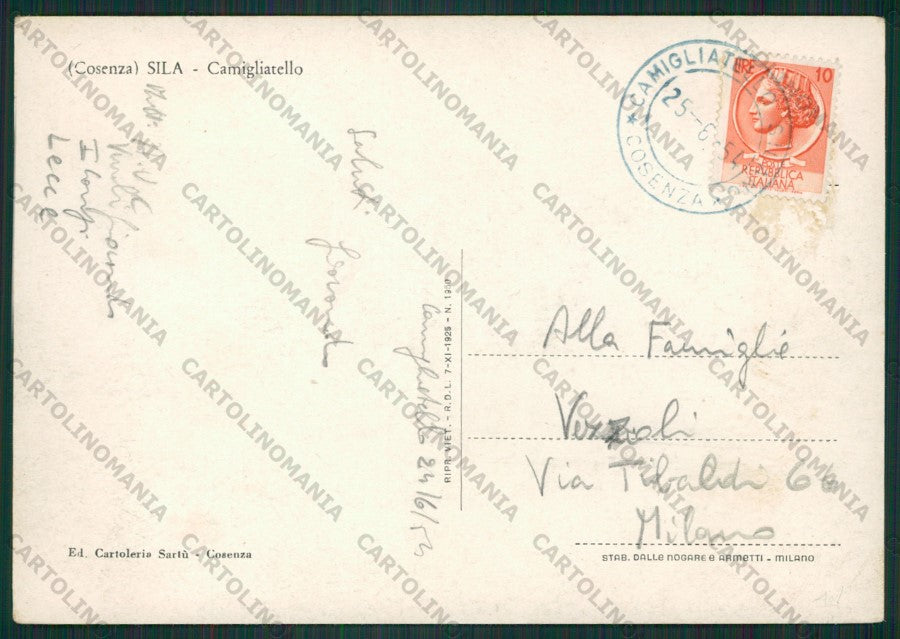 (Cosenza) SILA - Camigliatello
Lecce
Saluti
Camigliatello 24/6/54
RIPR. VIET. - R.D.L. 7-XI-1925 - N. 1950
CAMIGLIATELLO
25-6-54
COSENZA
LIRE 10
POSTE
REPVBBLICA
ITALIANA
Alla Famiglie
Verzoli
Via Tibaldi 66
Milano
Ed. Cartoleria Sartù - Cosenza
STAB. DALLE NOGARE e ARMETTI - MILANO
CARTOLINOMANIA